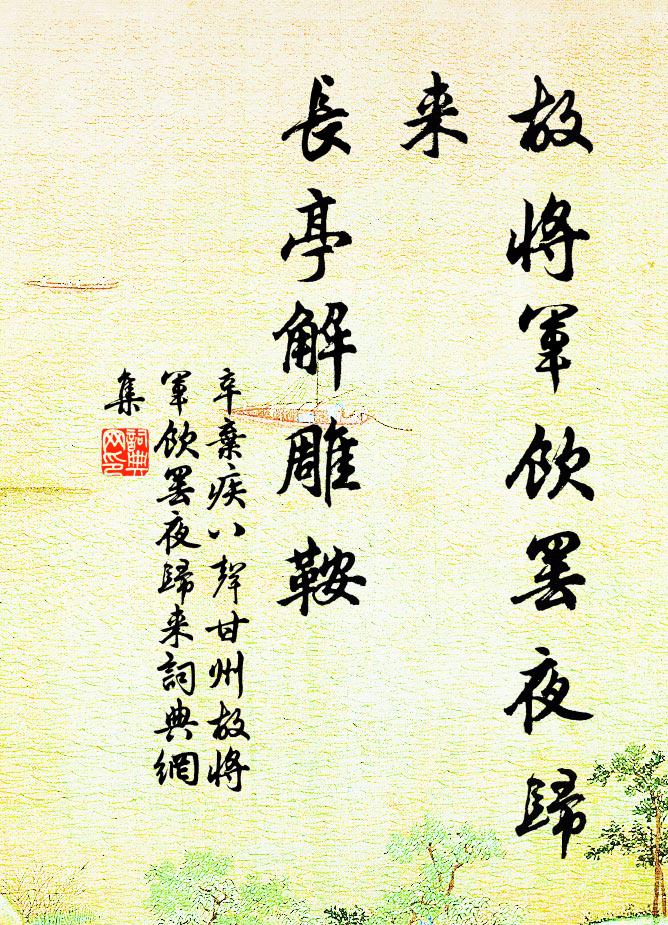 故將軍飲罷夜歸
来
長亭解雕鞍
辛棄疾八聲甘州故將
軍飲罷夜歸来詞典網
集
詞典
网印